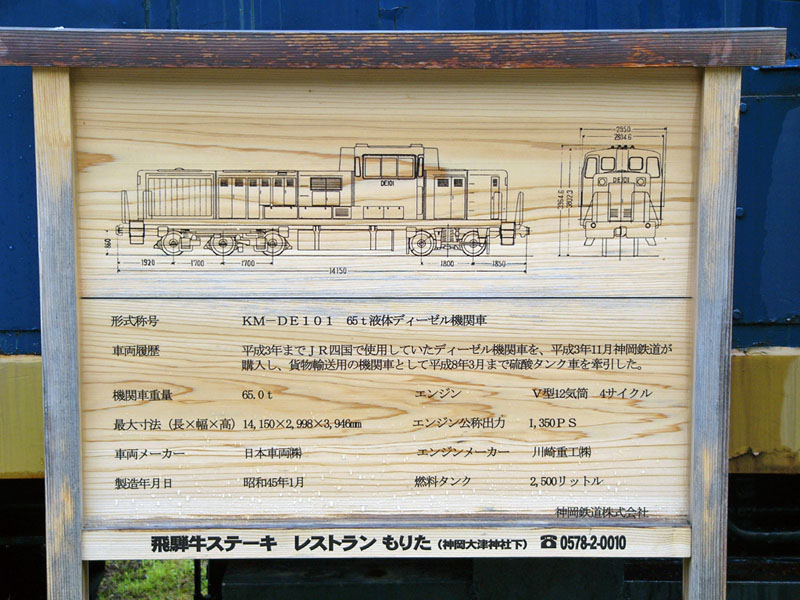 DE101
DE101
2950
2804.6
3964.6
3602.3
160
1920
1700
1700
14150
1800
1850
形式称号 KM-DE101 65t液体ディーゼル機関車
車両履歴 平成3年までJR四国で使用していたディーゼル機関車を、平成3年11月神岡鉄道が
購入し、貨物輸送用の機関車として平成8年3月まで硫酸タンク車を牽引した。
機関車重量 65.0t エンジン V型12気筒 4サイクル
最大寸法(長×幅×高) 14,150×2,998×3,946㎜ エンジン公称出力 1,350PS
車両メーカー 日本車両㈱ エンジンメーカー 川崎重工㈱
製造年月日 昭和45年1月 燃料タンク 2,500リットル
神岡鉄道株式会社
飛騨牛ステーキ レストラン もりた (神岡大津神社下) ☎0578-2-0010